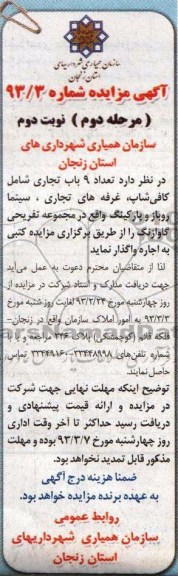 سازمان همیاری شهرداریهای
استان زنجان
آگهی مزایده شماره ۹۳/۳
( مرحله دوم ) نوبت دوم
سازمان همیاری شهرداری های
استان زنجان
در نظر دارد تعداد ۹ باب تجاری شامل
کافی‌شاپ، غرفه های تجاری ، سینما
روباز و پارکینگ واقع در مجموعه تفریحی
گاوازنگ را از طریق برگزاری مزایده کتبی
به اجاره واگذار نماید
لذا از متقاضیان محترم دعوت به عمل می‌آید
جهت دریافت مدارک و اسناد شرکت در مزایده از
روز چهارشنبه مورخ ۹۳/۲/۲۴ لغایت روز شنبه مورخ
۹۳/۳/۳ به امور املاک سازمان واقع در زنجان-
فلکه قائم (کوچمشکی) پلاک ۲۳۶ مراجعه و یا با
شماره تلفن‌های ۳۳۴۴۸۹۹۸-۳۳۴۴۹۱۶۰ تماس
حاصل نمایند.
توضیح اینکه مهلت نهایی جهت شرکت
در مزایده و ارائه قیمت پیشنهادی و
دریافت رسید حداکثر تا آخر وقت اداری
روز چهارشنبه مورخ ۹۳/۳/۷ بوده و مهلت
مذکور قابل تمدید نخواهد بود.
ضمنا هزینه درج آگهی
به عهده برنده مزایده خواهد بود.
روابط عمومی
سازمان همیاری شهرداریهای
استان زنجان